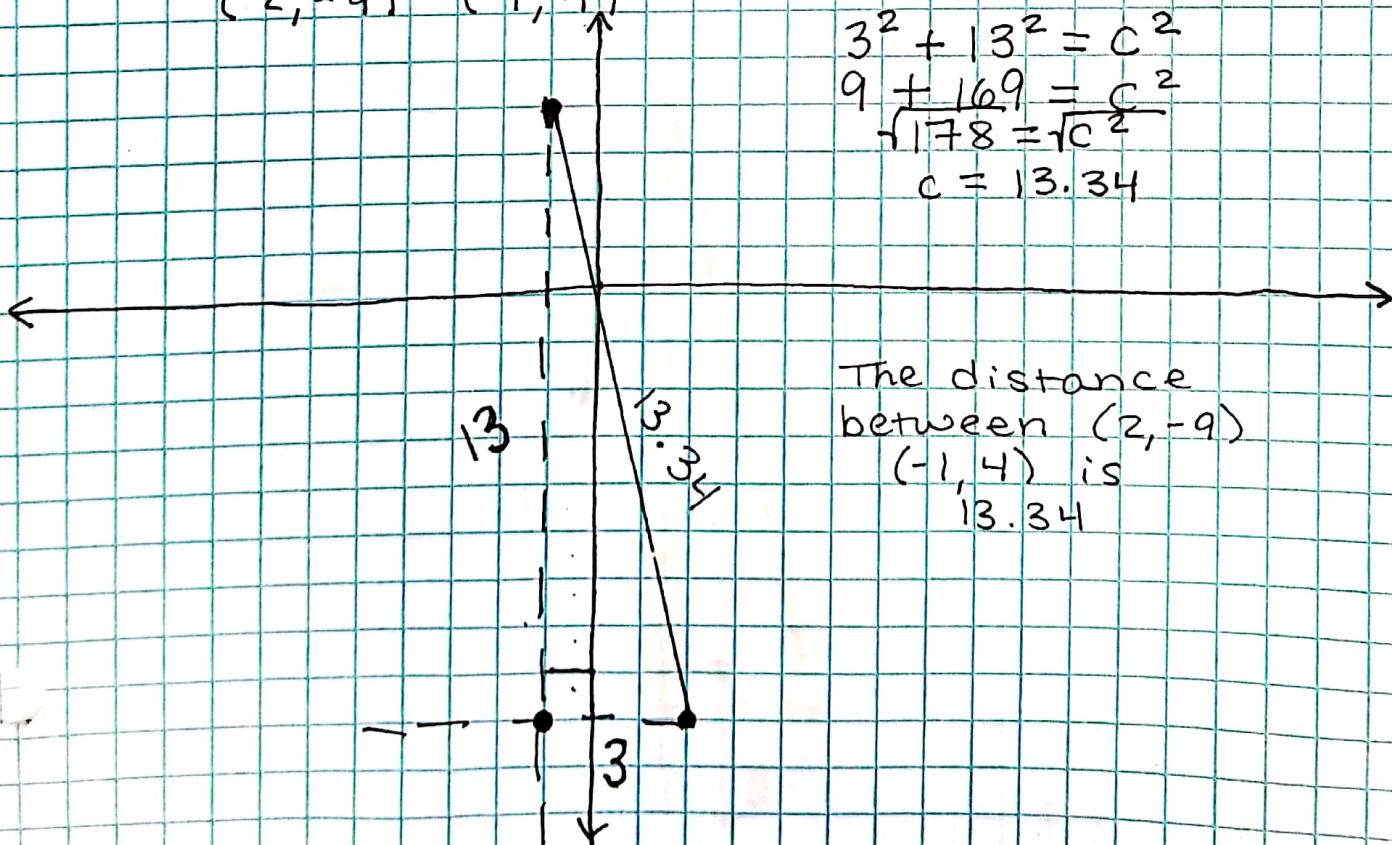 3² + 13² = c²
9 + 169 = c²
√178 = √c²
c = 13.34
13
13.34
The distance
between (2,-9)
(-1,4) is
13.34
3